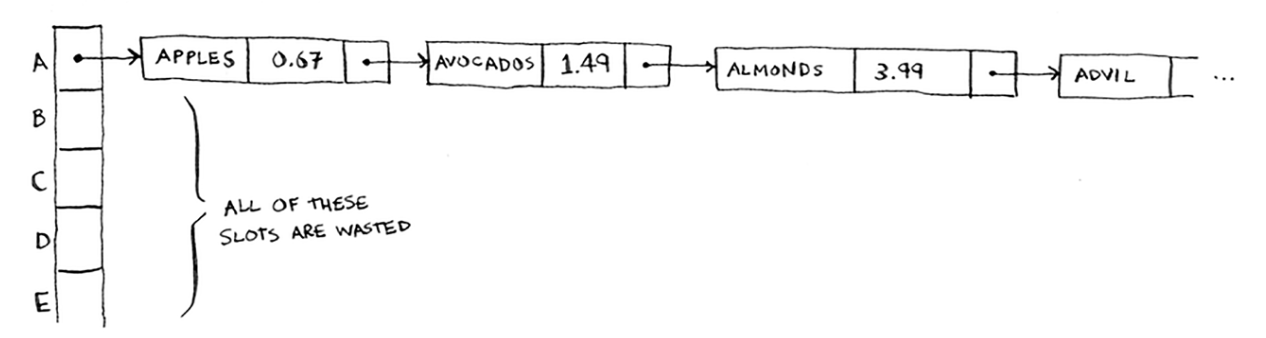 A
APPLES 0.67 AVOCADOS 1.49 ALMONDS 3.99 ADVIL ...
B
C
D
E
ALL OF THESE
SLOTS ARE WASTED